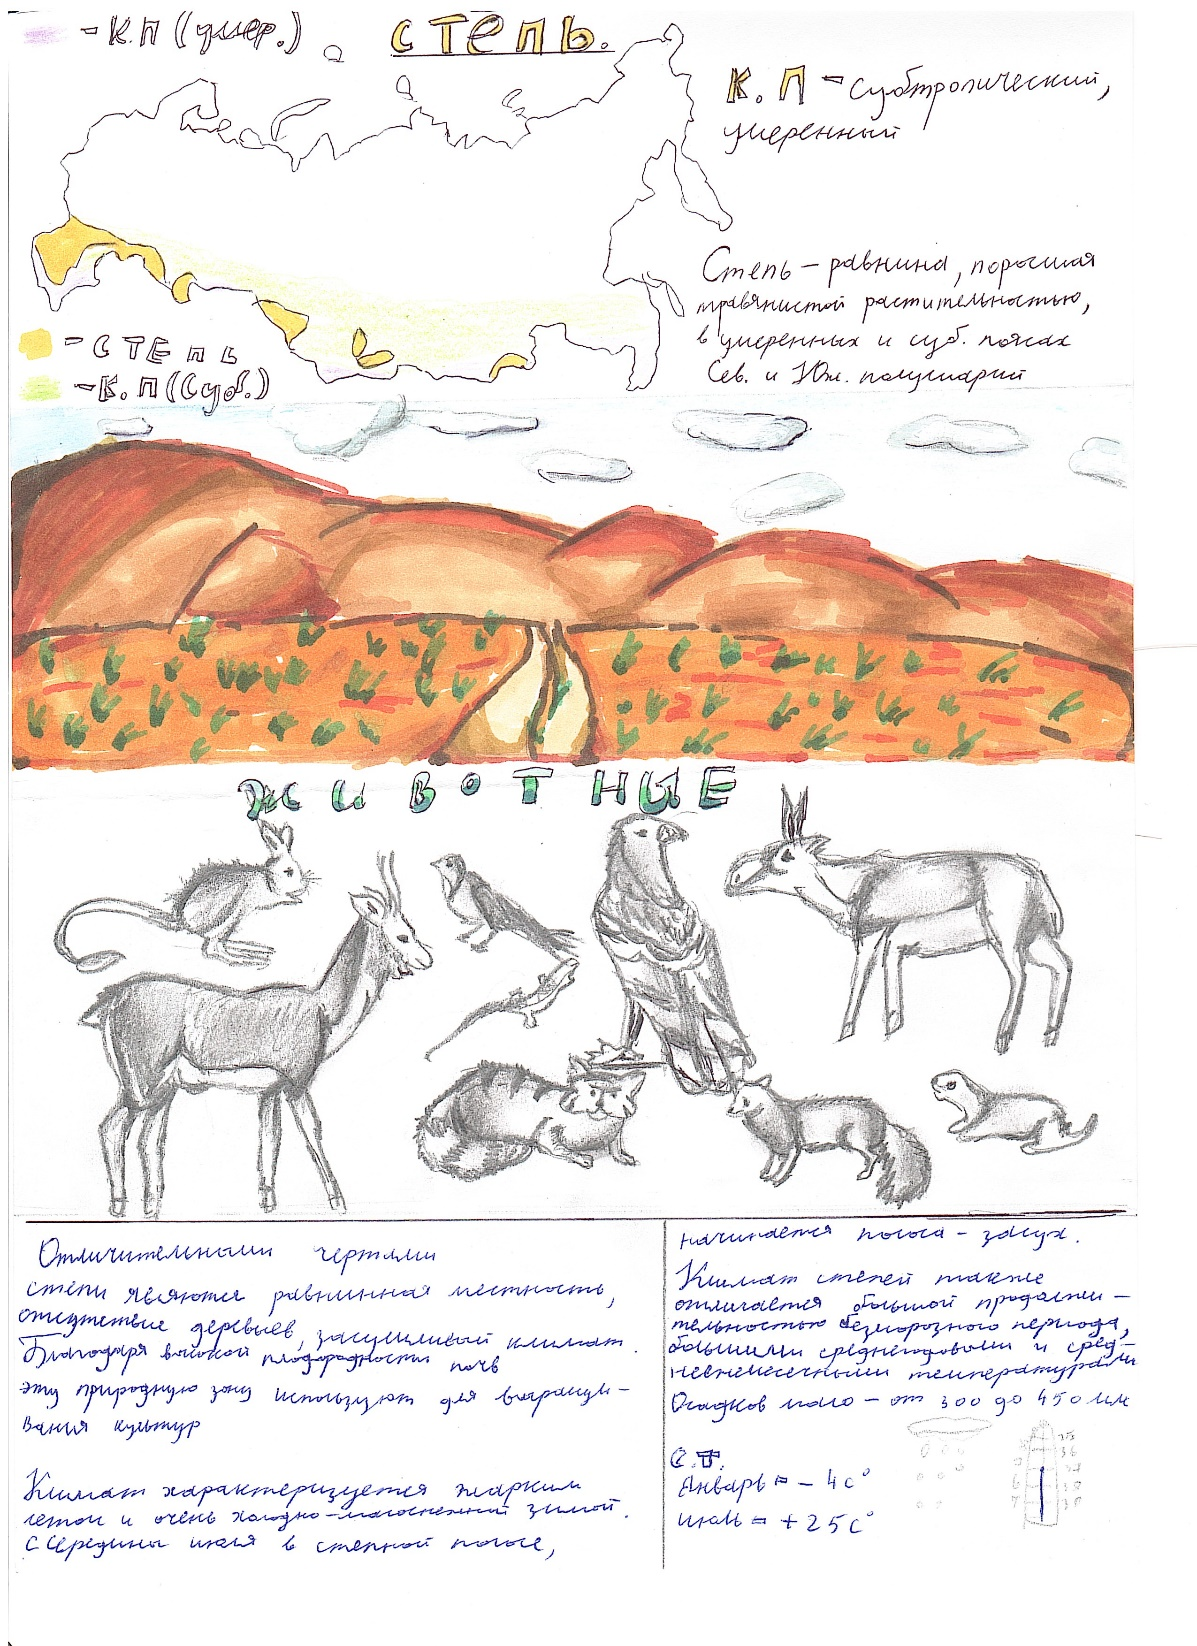 - К.П (умер.)
СТЕПЬ.
К. П - субтропический,
умеренный
Степь - равнина, поросшая
травянистой растительностью,
в умеренных и суб. поясах
Сев. и Юж. полушарий
- СТЕПЬ
- К.П (Суб.)
ЖИВОТНЫЕ
Отличительными чертами
степи являются равнинная местность,
отсутствие деревьев, засушливый климат.
Благодаря высокой плодородности почв
эту природную зону используют для выращи-
вания культур
Климат характеризуется жарким
летом и очень холодно-малоснежной зимой.
С середины июля в степной полосе,
начинается полоса - засух.
Климат степей также
отличается большой продолжи-
тельностью безморозного периода,
большими среднегодовыми и сред-
немесячными температурами
Осадков мало - от 300 до 450 мм
С.Т.
Январь = - 4с°
июль = + 25С°